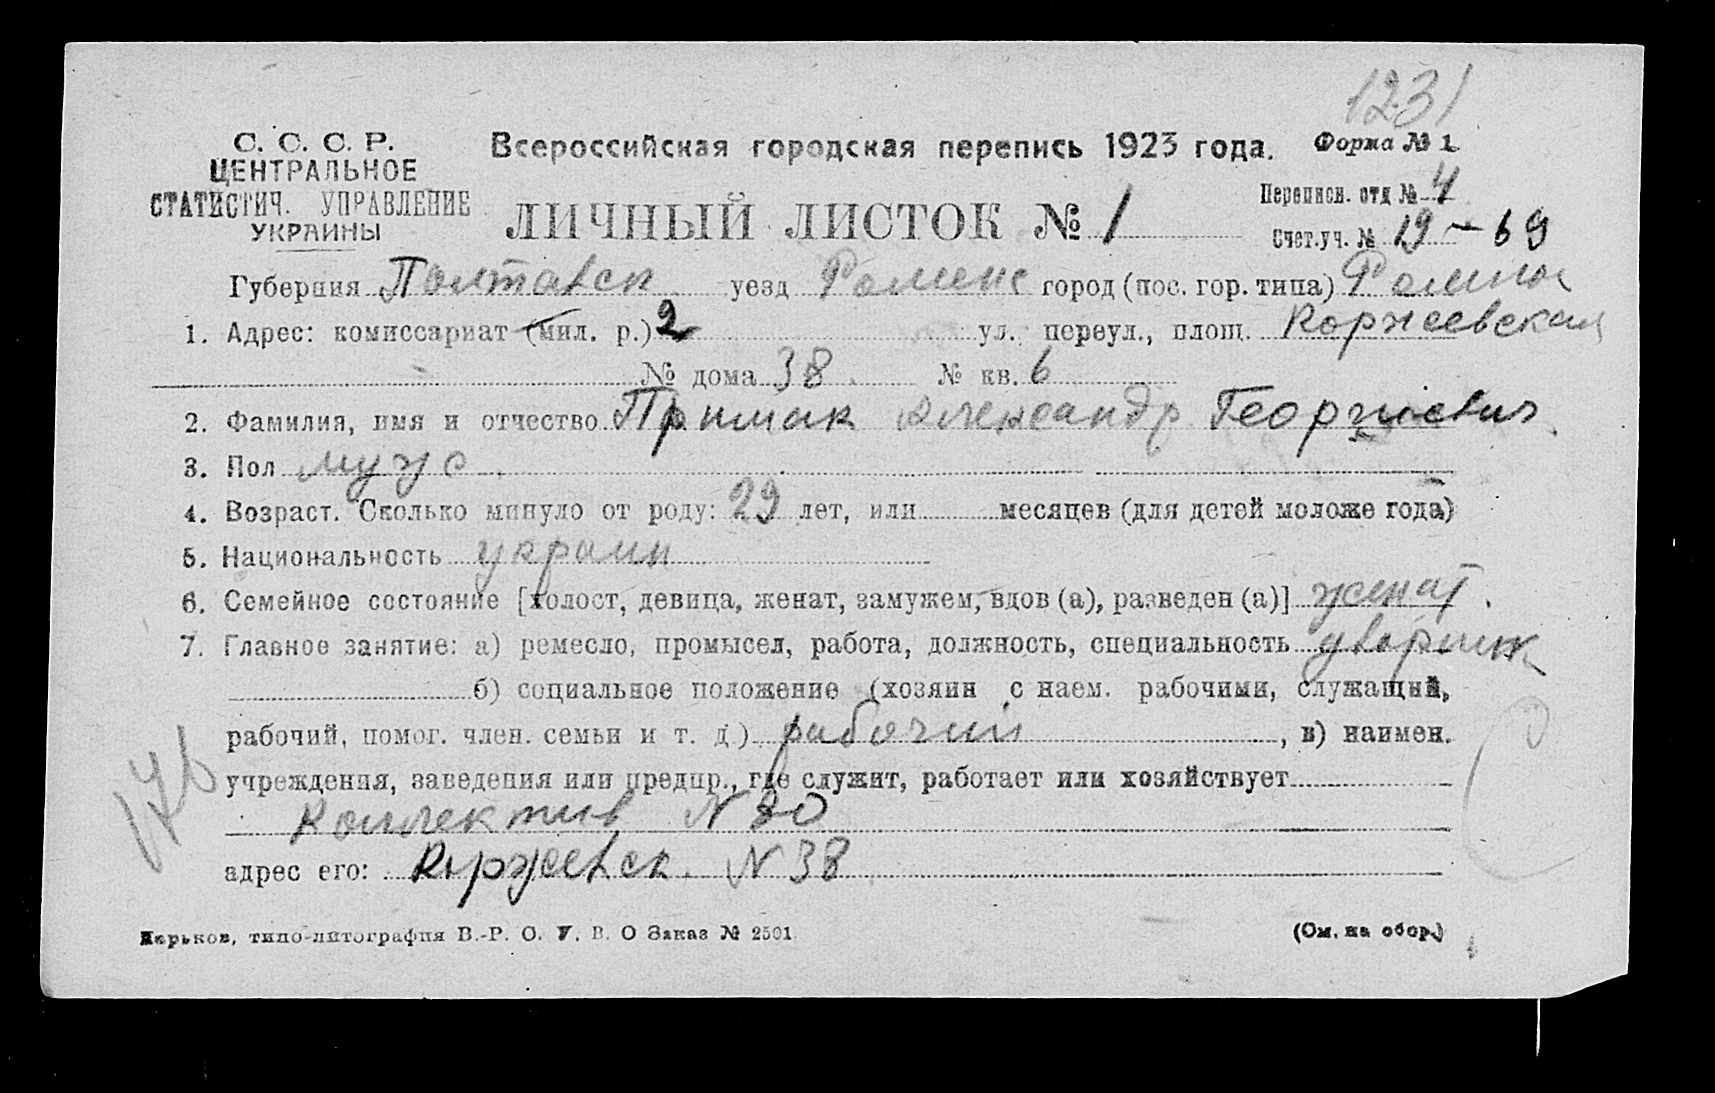 1231
С. С. С. Р.
ЦЕНТРАЛЬНОЕ
СТАТИСТИЧ. УПРАВЛЕНИЕ
УКРАИНЫ
Всероссийская городская перепись 1923 года.
Форма № 1
ЛИЧНЫЙ ЛИСТОК № 1
Переписн. отд № 4
Счет.уч. № 19 - 69
Губерния Полтавск уезд Роменс город (пос. гор. типа) Ромны
1. Адрес: комиссариат (мил. р.) 2 ул. переул., площ. Коржеевская
№ дома 38 № кв. 6
2. Фамилия, имя и отчество Примак Александр Георгиевич
3. Пол мужс
4. Возраст. Сколько минуло от роду: 29 лет, или месяцев (для детей моложе года)
5. Национальность украин
6. Семейное состояние [холост, девица, женат, замужем, вдов (а), разведен (а)] женат.
7. Главное занятие: а) ремесло, промысел, работа, должность, специальность дворник
б) социальное положение (хозяин с наем. рабочими, служащий,
рабочий, помог. член. семьи и т. д) рабочий, в) наимен.
учреждения, заведения или предпр., где служит, работает или хозяйствует
Коллектив N 80
адрес его: Коржевск. N 38
176
Харьков, типо-литография В.-Р. О. У. В. О Заказ № 2501
(См. на обор.)